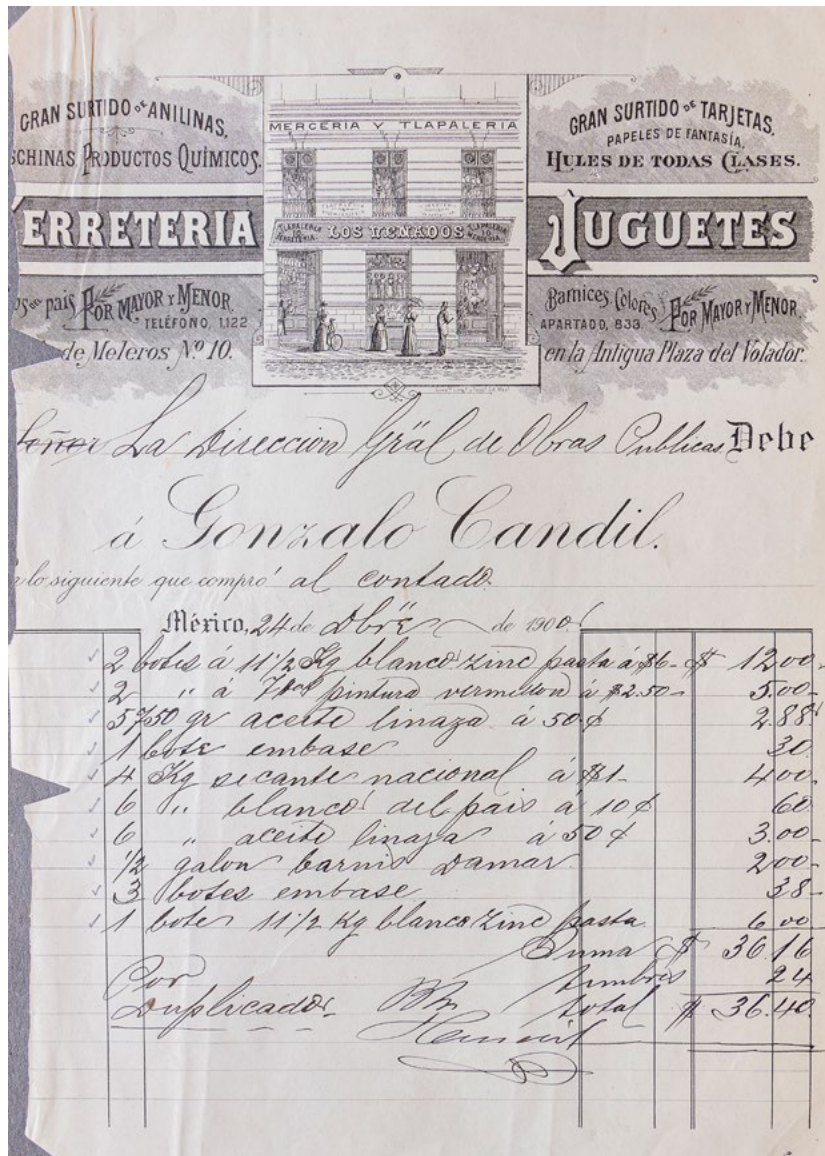 GRAN SURTIDO DE ANILINAS,
SCHINAS PRODUCTOS QUÍMICOS.
ERRETERIA
os en pais POR MAYOR Y MENOR.
TELÉFONO, 1,122
de Meleros Nº 10.
MERCERIA Y TLAPALERIA
TLAPALERIA 10 FERRETERIA
LOS VENADOS
TLAPALERIA 10 MERCERIA
GRAN SURTIDO DE TARJETAS,
PAPELES DE FANTASÍA,
HULES DE TODAS CLASES.
JUGUETES
Barnices, Colores, POR MAYOR Y MENOR,
APARTADO, 833.
en la Antigua Plaza del Volador.
Señor La Direccion Gräl de Obras Publicas Debe
á Gonzalo Candil.
lo siguiente que compró al contado.
México, 24 de Dbre de 1900.
2 botes á 11 1/2 Kg blanco zinc pasta á $6- $ 12.00-
2 " á pintura vermellon á $2.50- 5.00-
5,750 gr aceite linaza á 50 ¢ 2.88
1 bote embase 30
4 Kg secante nacional á $1- 4.00-
6 " blanco del pais á 10 ¢ 60
6 " aceite linaza á 50 ¢ 3.00-
1/2 galon barniz Damar 2.00-
3 botes embase 38-
1 bote 11 1/2 Kg blanco zinc pasta 6.00
Suma $ 36.16
timbres 24
total $ 36.40
Por
Duplicado.